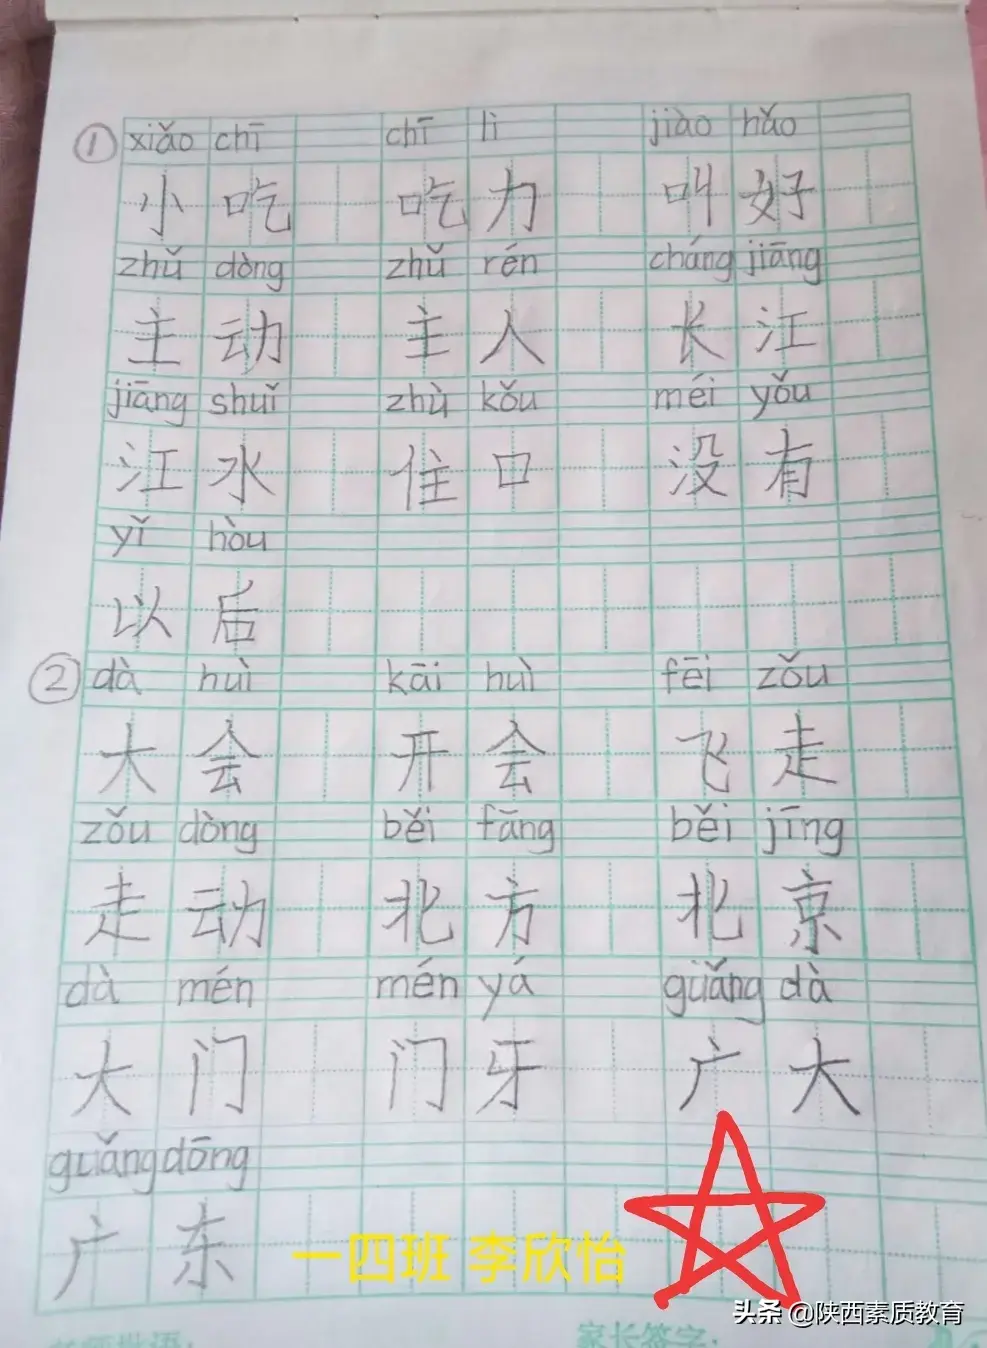 ① xiǎo chī chī lì jiào hǎo
小吃 吃力 叫好
zhǔ dòng zhǔ rén cháng jiāng
主动 主人 长江
jiāng shuǐ zhù kǒu méi yǒu
江水 住口 没有
yǐ hòu
以后
② dà huì kāi huì fēi zǒu
大会 开会 飞走
zǒu dòng běi fāng běi jīng
走动 北方 北京
dà mén mén yá guǎng dà
大门 门牙 广大
guǎng dōng
广东
一四班 李欣怡
头条 @陕西素质教育
家长签字: